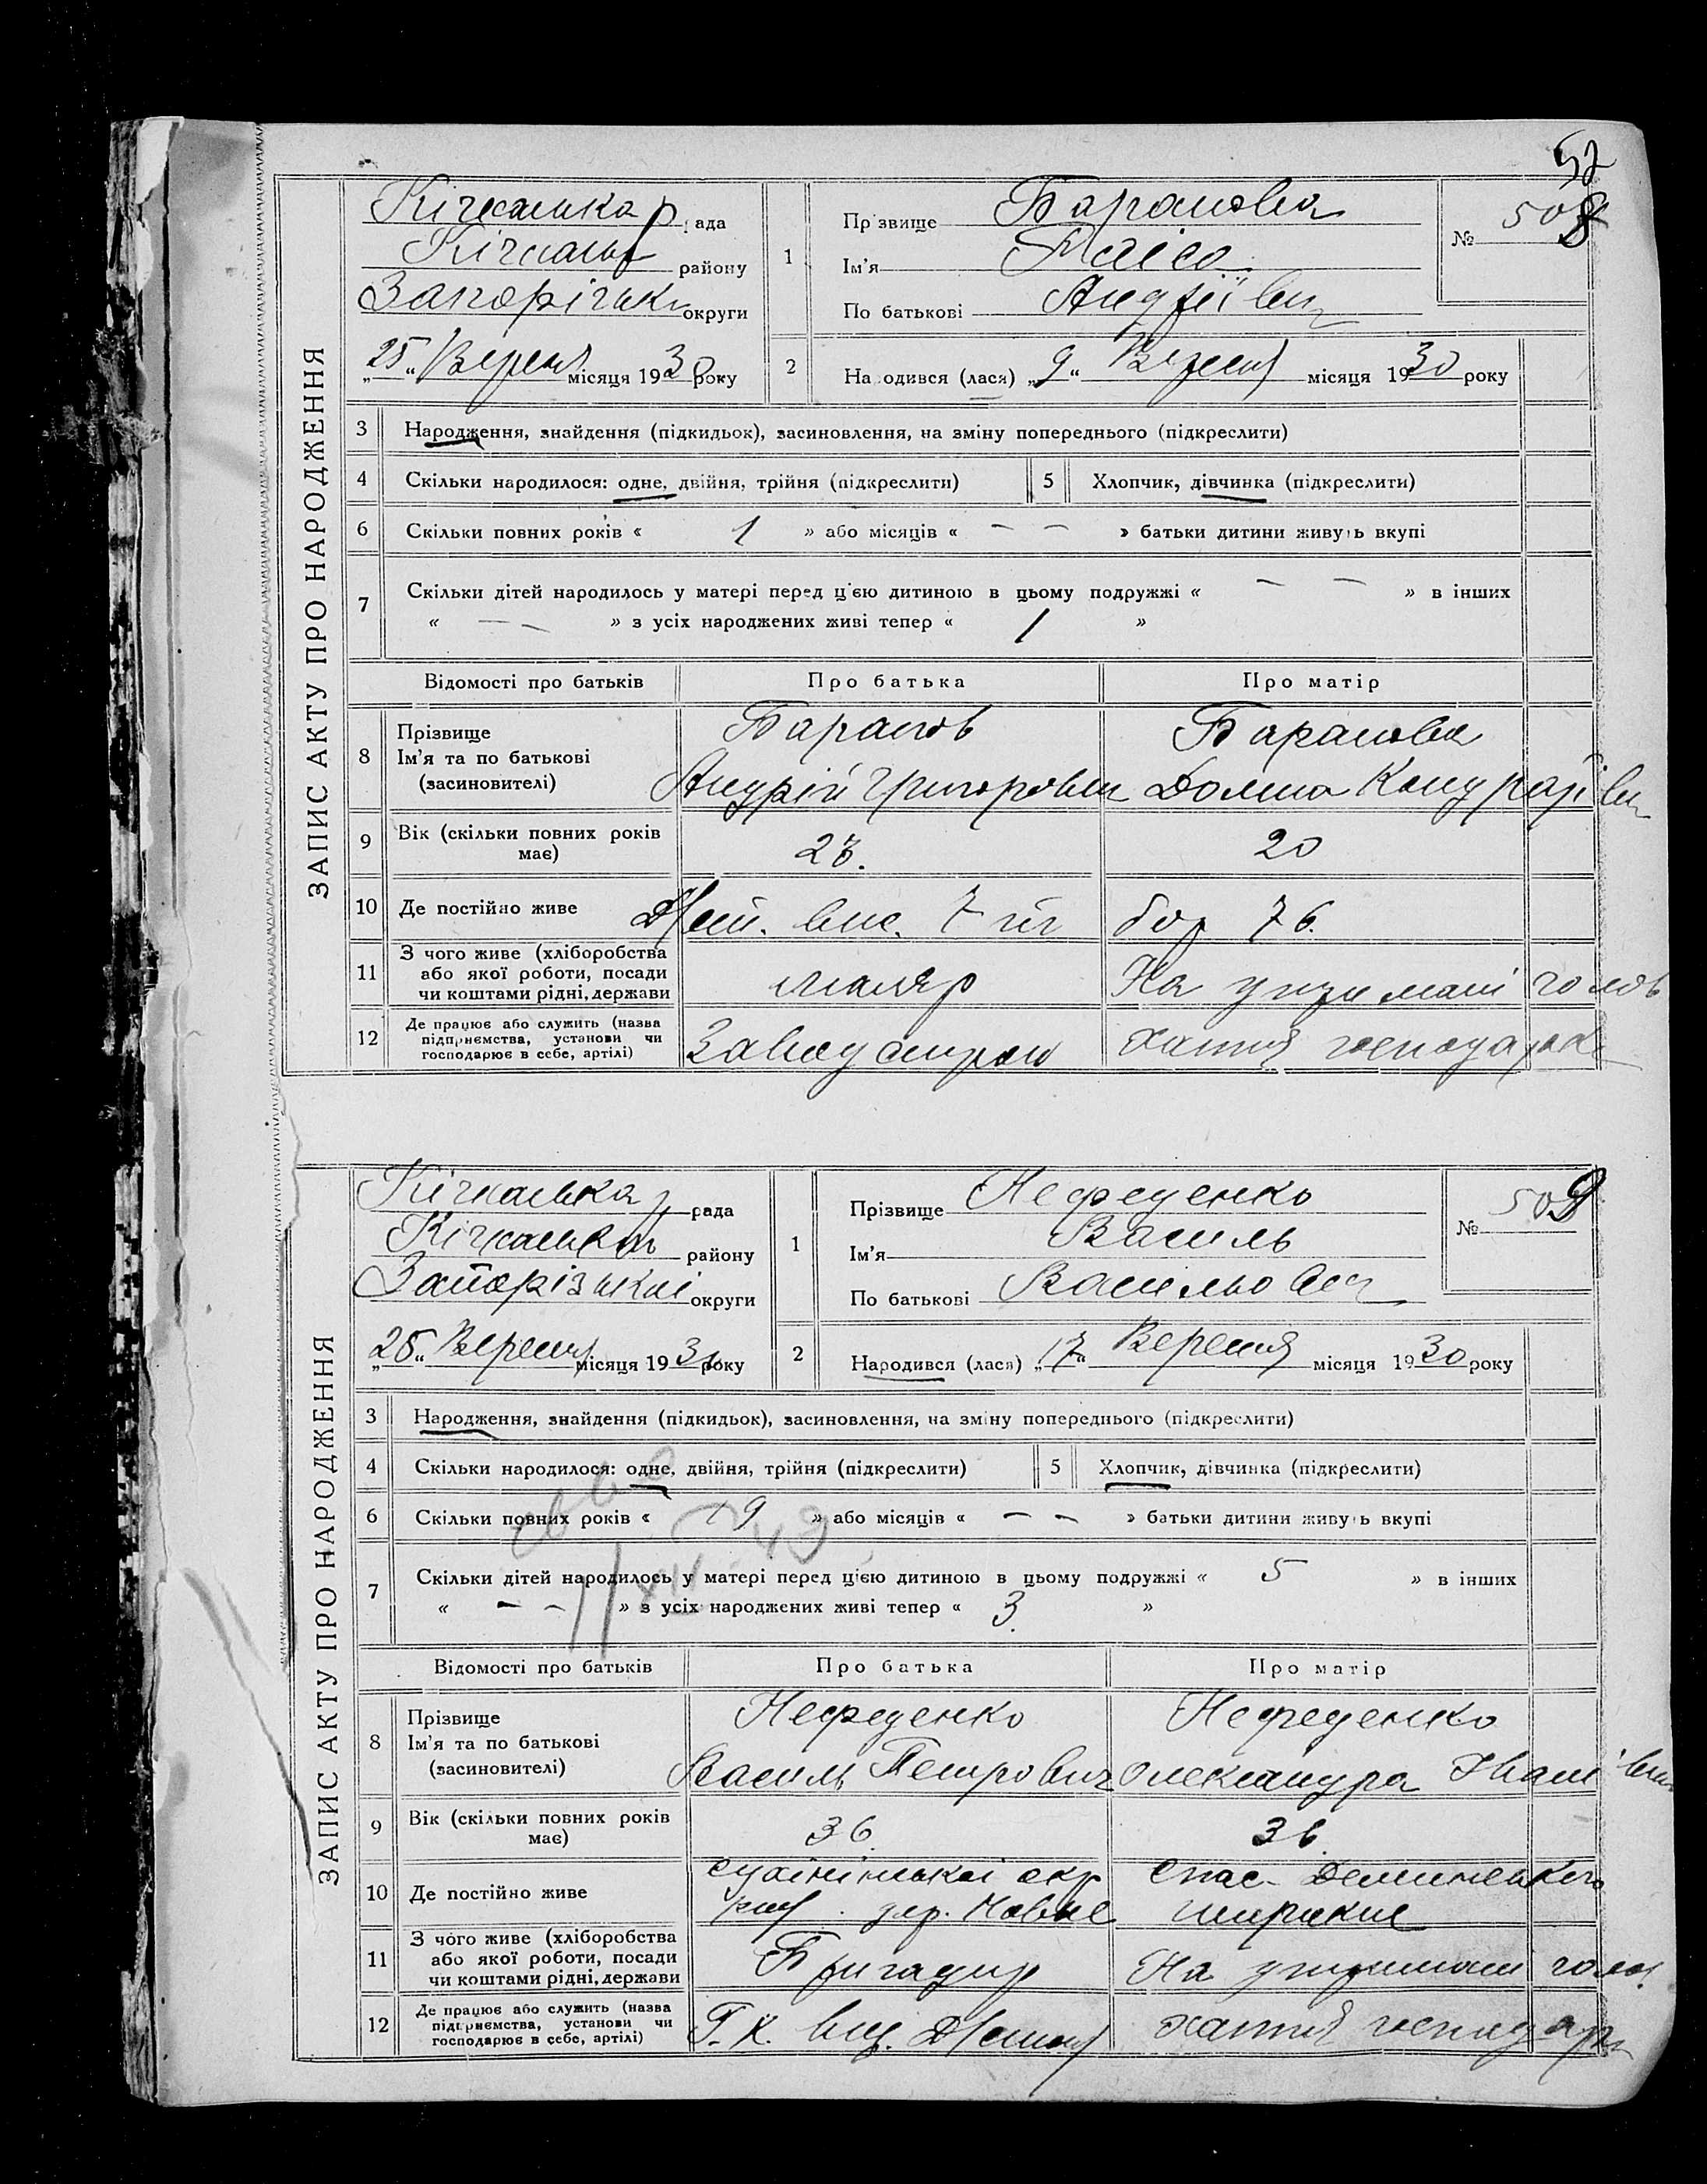 52
ЗАПИС АКТУ ПРО НАРОДЖЕННЯ
Кічкаська рада
району
округи
„25“ Вересня місяця 1930 року
1 Прізвище Баранова
Ім'я
По батькові Андріївн
№ 508
2 Народився (лася) „9“ Вересня місяця 1930 року
3 Народження, знайдення (підкидьок), засиновлення, на зміну попереднього (підкреслити)
4 Скільки народилося: одне, двійня, трійня (підкреслити)
5 Хлопчик, дівчинка (підкреслити)
6 Скільки повних років « 1 » або місяців « — — » батьки дитини живуть вкупі
7 Скільки дітей народилось у матері перед цією дитиною в цьому подружжі « — — » в інших
« — — » з усіх народжених живі тепер « 1 »
Відомості про батьків Про батька Про матір
8 Прізвище
Ім'я та по батькові
(засиновителі)
Баранов
Андрій Григорович
Баранова
Домна Кондратівн
9 Вік (скільки повних років має) 23. 20
10 Де постійно живе 7 76.
11 З чого живе (хліборобства або якої роботи, посади чи коштами рідні, держави маляр На утримані голов
12 Де працює або служить (назва підприємства, установи чи господарює в себе, артілі) хатня господарка
ЗАПИС АКТУ ПРО НАРОДЖЕННЯ
Кічкаська рада
Кічкаськог району
Запорізької округи
„25“ Вересня місяця 1930 року
1 Прізвище Нефеденко
Ім'я Василь
По батькові Васильович
№ 509
2 Народився (лася) „17“ Вересня місяця 1930 року
3 Народження, знайдення (підкидьок), засиновлення, на зміну попереднього (підкреслити)
4 Скільки народилося: одне, двійня, трійня (підкреслити)
5 Хлопчик, дівчинка (підкреслити)
6 Скільки повних років « 19 » або місяців « — — » батьки дитини живуть вкупі
7 Скільки дітей народилось у матері перед цією дитиною в цьому подружжі « 5 » в інших
« — — » з усіх народжених живі тепер « 3. »
Відомості про батьків Про батька Про матір
8 Прізвище
Ім'я та по батькові
(засиновителі)
Нефеденко
Василь Петрович
Нефеденко
Олександра Іванівн
9 Вік (скільки повних років має) 36. 36.
10 Де постійно живе Сухініської окр Спас-Деминського
11 З чого живе (хліборобства або якої роботи, посади чи коштами рідні, держави Бригадир На утримані голов
12 Де працює або служить (назва підприємства, установи чи господарює в себе, артілі) хатня господарк